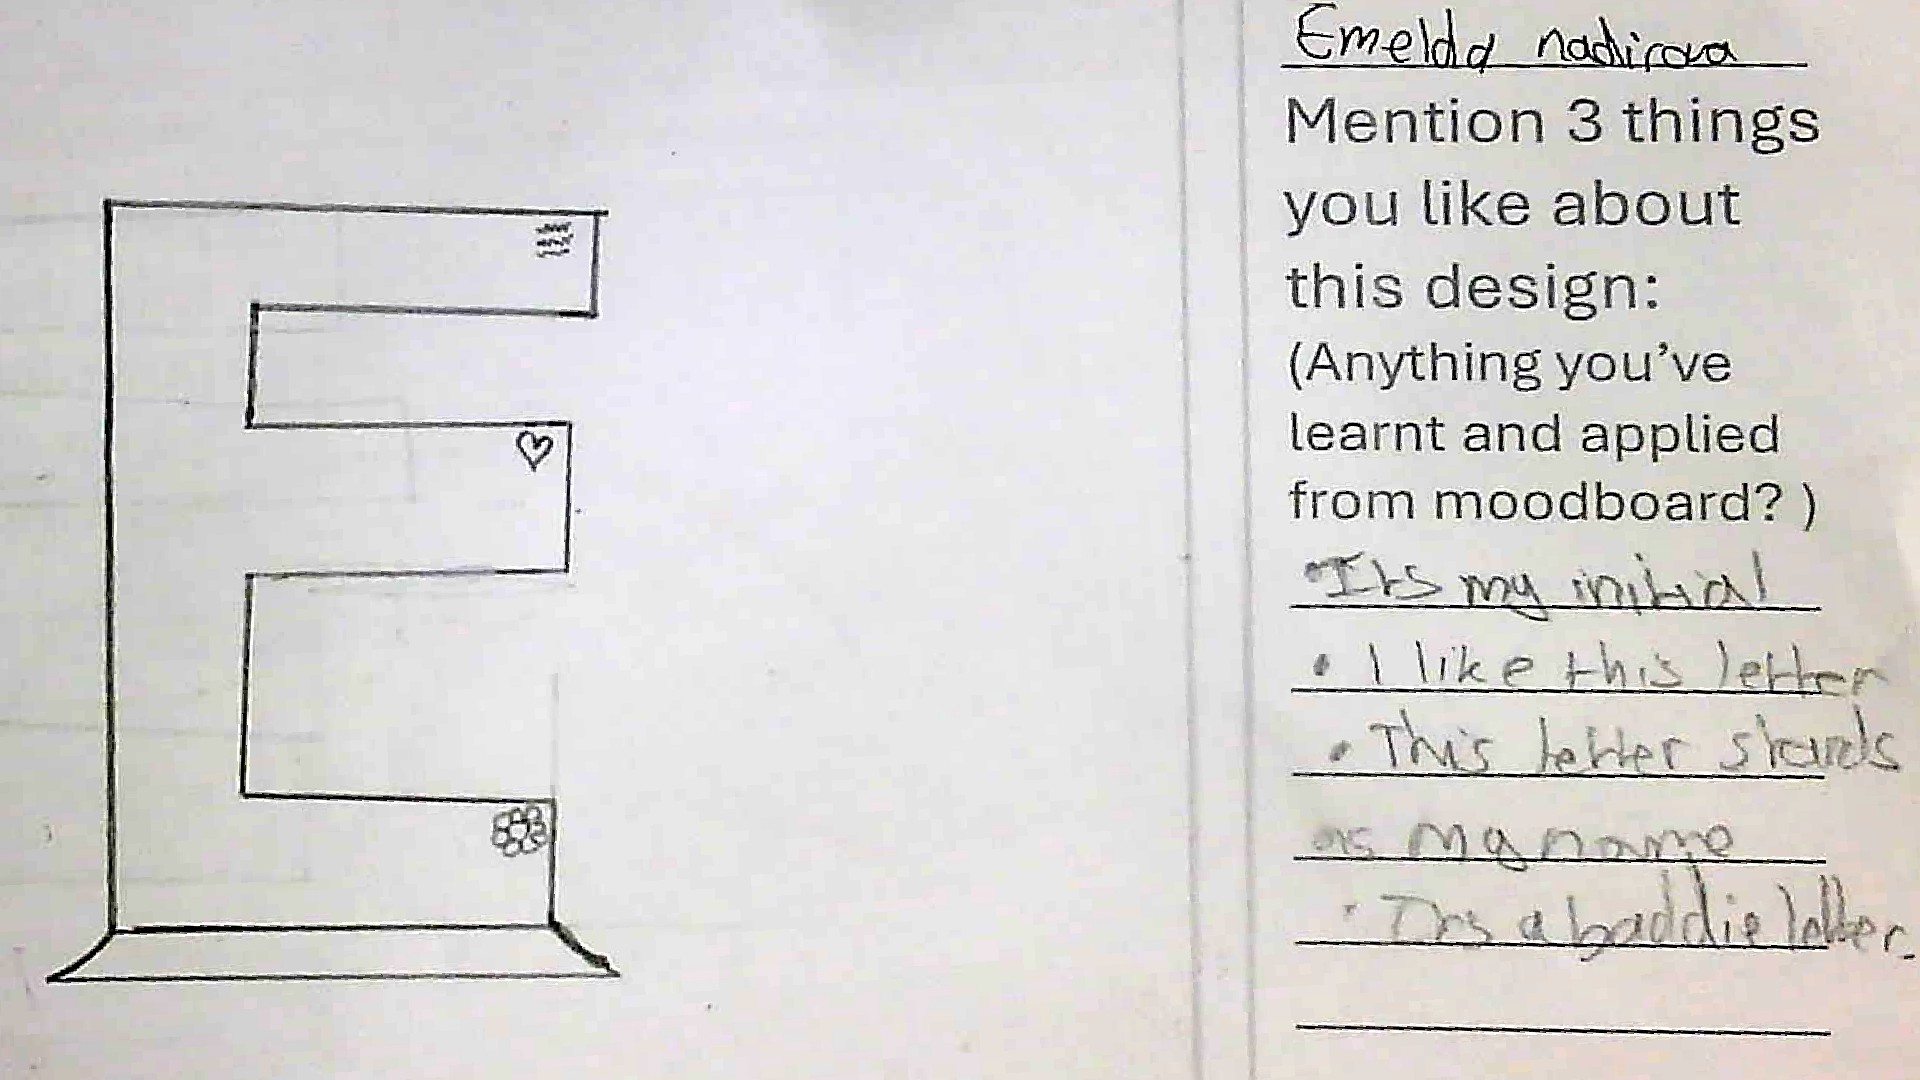 Emelda nadirova
Mention 3 things
you like about
this design:
(Anything you've
learnt and applied
from moodboard? )
•Its my initial
• I like this letter
• This letter stands
as my name
• Its a baddie letter.